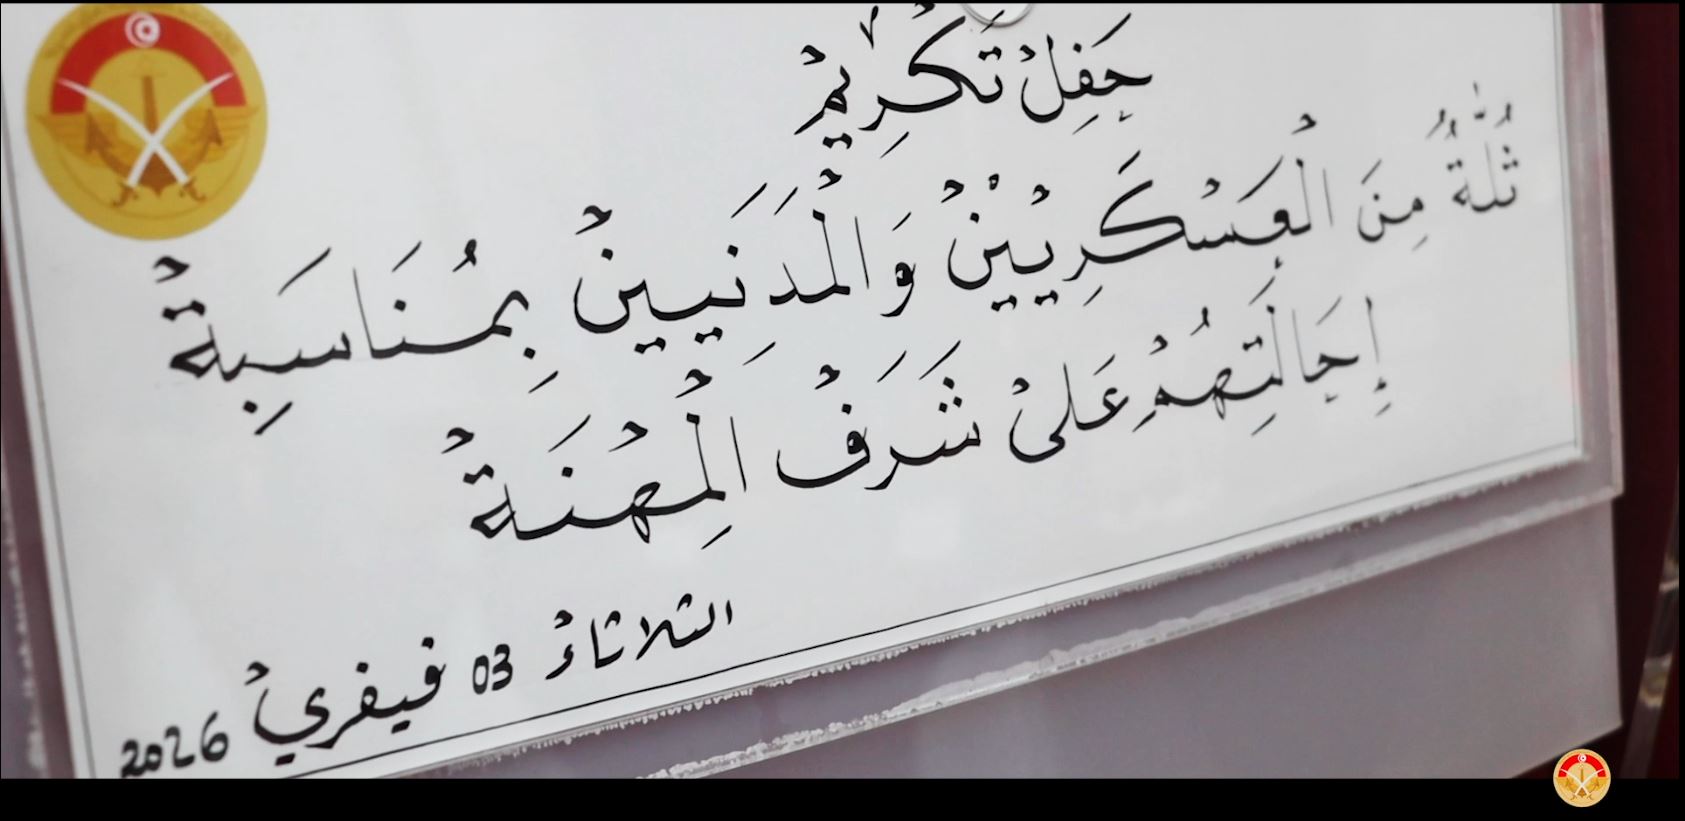 حَفِلْ تَكْرِيمْ
ثُلَّةُ مِنَ الْعَسْكَرِيِّينْ وَالْمَدَنِيينْ بِمُنَاسَبِةْ
إِحَالَتِهُمْ عَلىْ شَرَفْ الْمِهْنَةْ
الثلاثاءْ 03 فيفريْ 2026